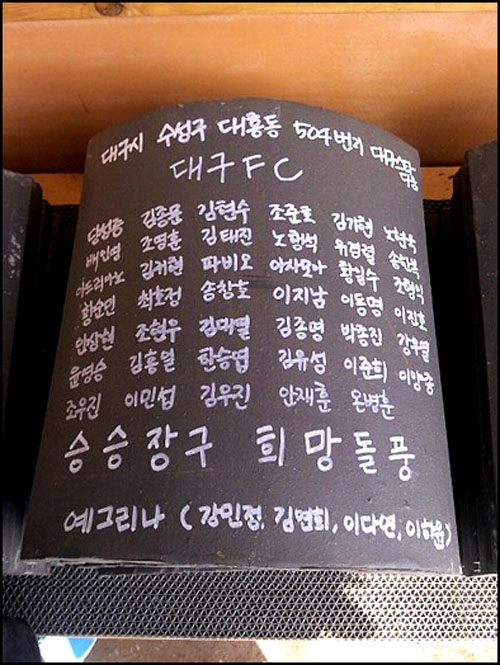 대구시 수성구 대흥동 504번지 대구스타디움
대구FC
당성증 김종용 김현수 조준호 김기현 노남욱
배인영 조영훈 김태진 노행석 유경렬 송한복
아드리아노 김귀현 파비오 아사모아 황일수 조형익
황순민 최호정 송창호 이지남 이동명 이진호
안상현 조현우 김대열 김종명 박종진 강우열
윤영승 김흥일 한승엽 김유성 이준희 이양종
조우진 이민섭 김우진 안재훈 온병훈
승승장구 희망돌풍
예그리나 (강민정, 김면희, 이다연, 이하윤)